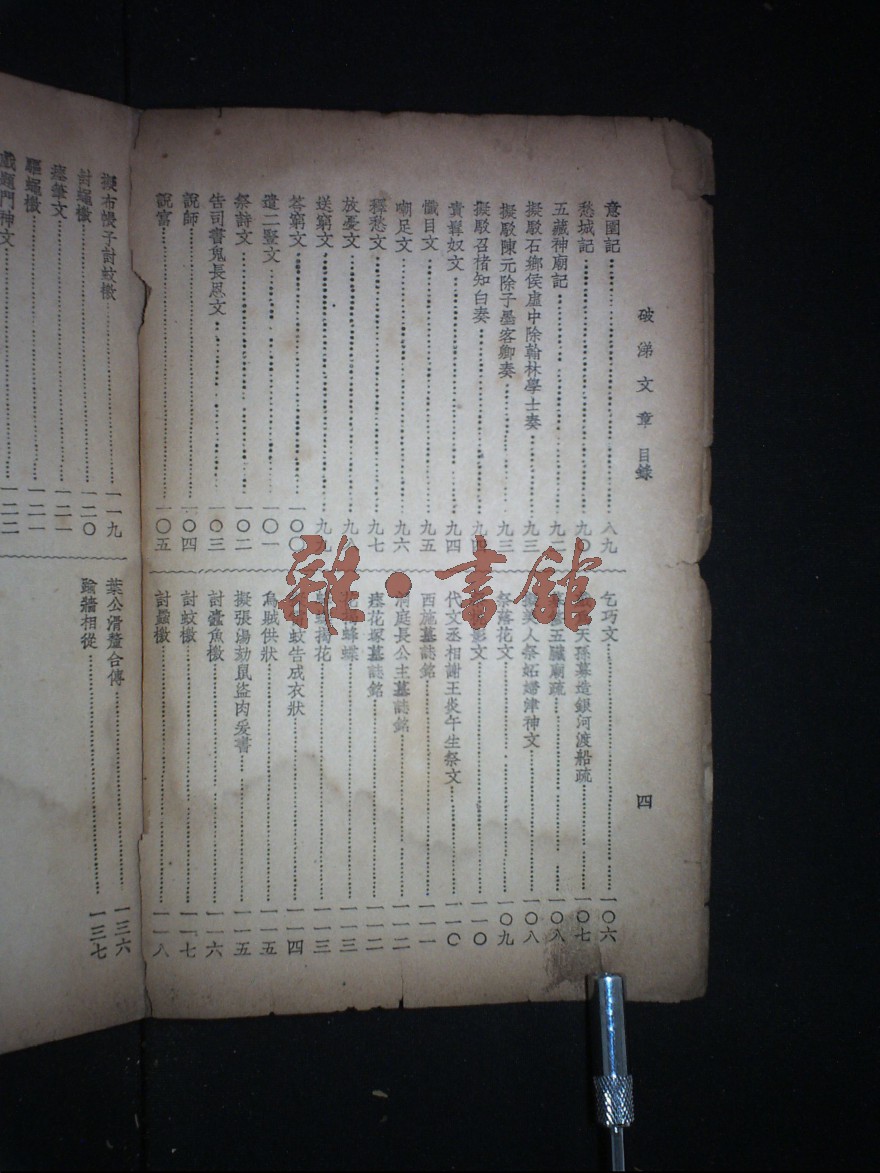 破涕文章 目錄
四
意園記 八九
愁城記 九〇
五藏神廟記 九二
擬駁石鄉侯虛中除翰林學士奏 九三
擬駁陳元除子墨客卿奏 九三
擬駁召楮知白奏 九四
責髯奴文 九四
懺目文 九五
嘲足文 九六
釋愁文 九七
放憂文 九八
送窮文 九九
答窮文 一〇〇
遣二豎文 一〇一
祭詩文 一〇二
告司書鬼長恩文 一〇三
說師 一〇四
說富 一〇五
乞巧文 一〇六
天孫募造銀河渡船疏 一〇七
五臟廟疏 一〇八
美人祭妬婦津神文 一〇八
祭落花文 一〇九
影文 一一〇
代文丞相謝王炎午生祭文 一一〇
西施墓誌銘 一一一
洞庭長公主墓誌銘 一一二
瘞花塚墓誌銘 一一二
蜂蝶 一一三
花 一一三
蚊告成衣狀 一一四
烏賊供狀 一一五
擬張湯劾鼠盜肉爰書 一一五
討蠹魚檄 一一六
討蚊檄 一一七
討蝨檄 一一八
擬布幔子討蚊檄 一一九
討蠅檄 一二〇
瘞筆文 一二一
驅蠅檄 一二一
戲題門神文 一二二
葉公滑釐合傳 一三六
踰牆相從 一三七
雜·書館